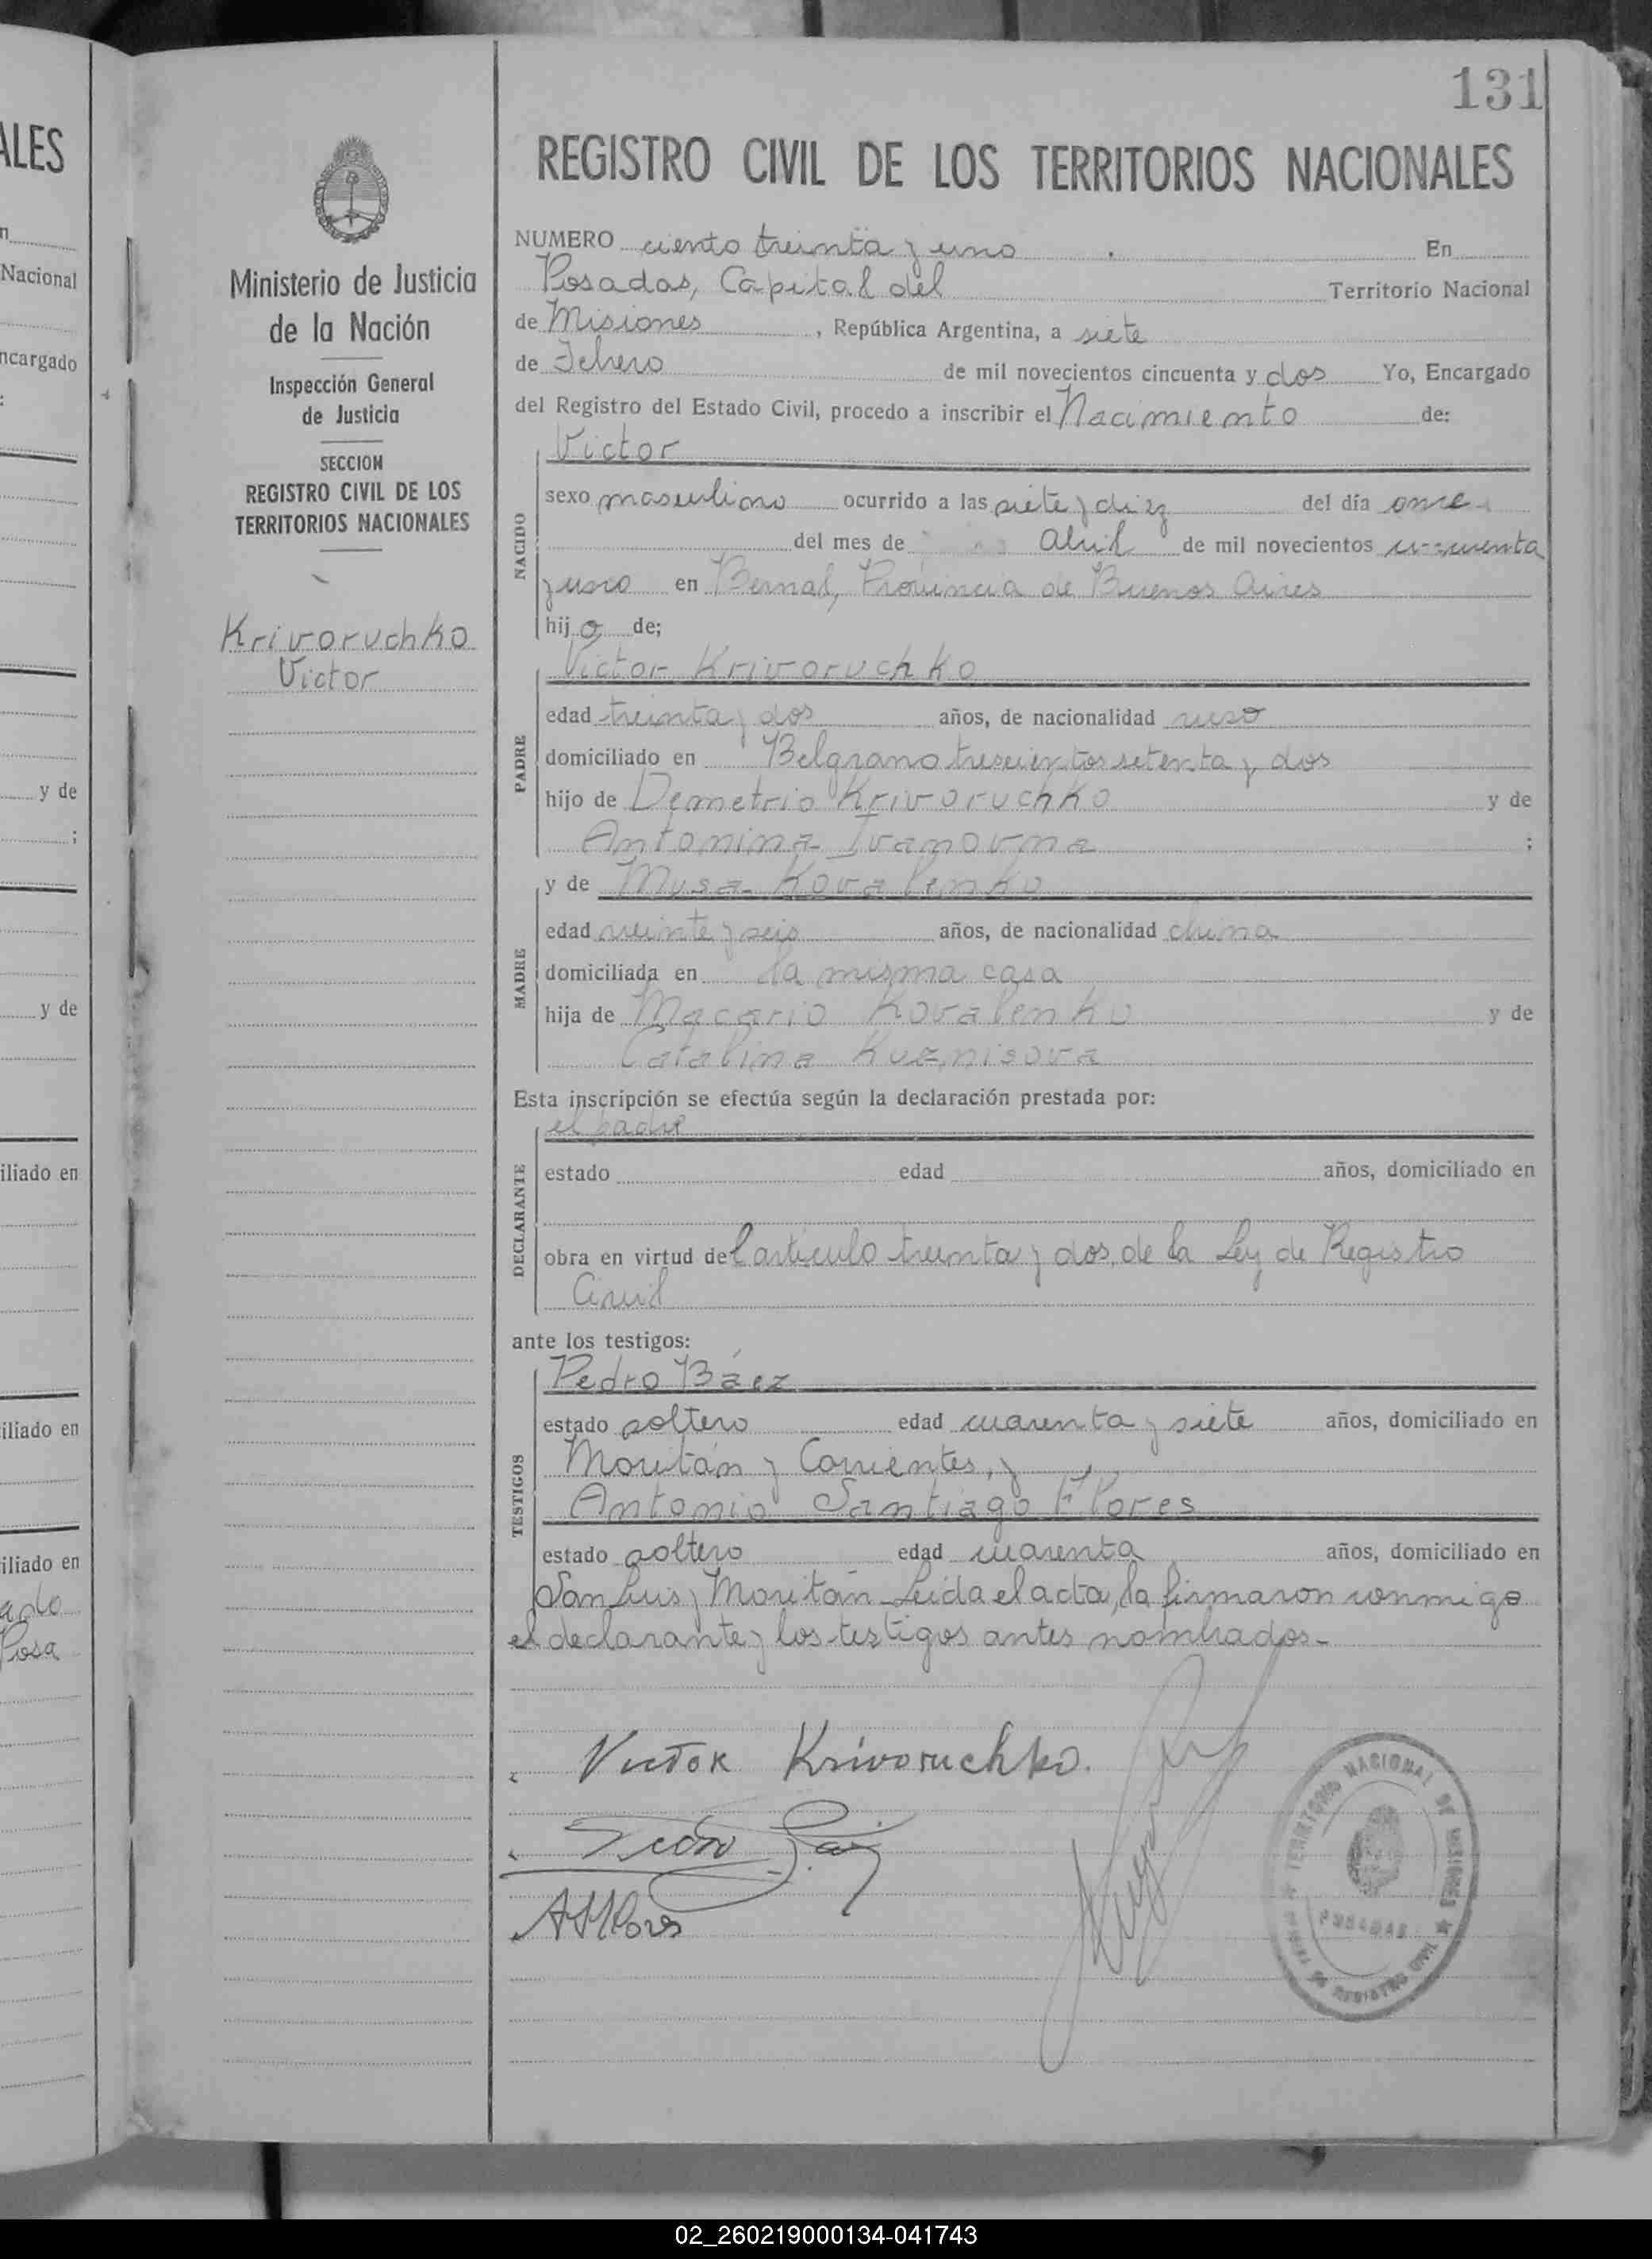 131
ALES
REGISTRO CIVIL DE LOS TERRITORIOS NACIONALES
Nacional
ncargado
y de
;
y de
iliado en
iliado en
iliado en
Posa
Ministerio de Justicia
de la Nación
Inspección General
de Justicia
SECCION
REGISTRO CIVIL DE LOS
TERRITORIOS NACIONALES
Krivoruchko
Victor
NUMERO ciento treinta y uno En
Posadas, Capital del Territorio Nacional
de Misiones, República Argentina, a siete
de Febrero de mil novecientos cincuenta y dos Yo, Encargado
del Registro del Estado Civil, procedo a inscribir el Nacimiento de:
NACIDO
Victor
sexo masculino ocurrido a las siete y diez del día once
del mes de Abril de mil novecientos cincuenta
y uno en Bernal, Provincia de Buenos Aires
hijo de;
PADRE
Victor Krivoruchko
edad treinta y dos años, de nacionalidad ruso
domiciliado en Belgrano trescientos setenta y dos
hijo de Demetrio Krivoruchko y de
Antonina Ivanovna ;
MADRE
y de Musa Kovalenko
edad veinte y seis años, de nacionalidad china
domiciliada en la misma casa
hija de Macario Kovalenko y de
Catalina Kuznisova
Esta inscripción se efectúa según la declaración prestada por:
DECLARANTE
el padre
estado edad años, domiciliado en
obra en virtud del artículo treinta y dos, de la Ley de Registro
Civil
ante los testigos:
TESTIGOS
Pedro Báez
estado soltero edad cuarenta y siete años, domiciliado en
Moritán y Corrientes, y
Antonio Santiago Flores
estado soltero edad cuarenta años, domiciliado en
San Luis y Moritán Leída el acta, la firmaron conmigo
el declarante y los testigos antes nombrados.-
Victor Krivoruchko.
ASFlores
TERRITORIO NACIONAL DE MISIONES
POSADAS
REGISTRO CIVIL
02_260219000134-041743